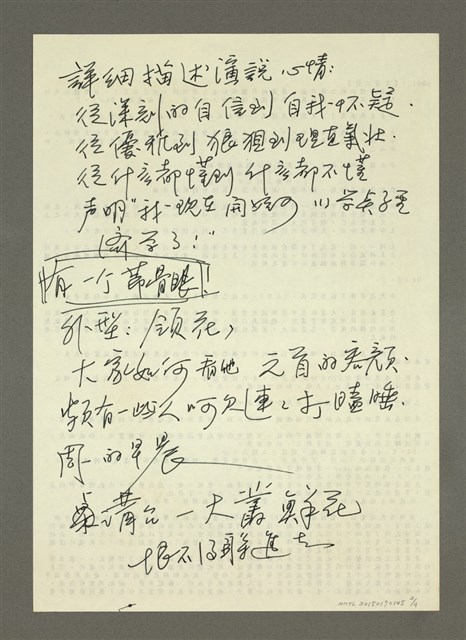 詳細描述演說心情:
從深刻的自信到自我怀疑.
從優雅到狼狽到理直氣壮.
從什么都懂到什么都不懂
声明"我现在開始可以学貞子
濟学了!"
有一个节骨眼!
外型: 領花,
大家如何看他 元首的容顏.
頻有一些人呵欠連連打瞌睡.
周一的早晨
講台一大叢鮮花
恨不得躲進去
NMTL20150130145 2/4